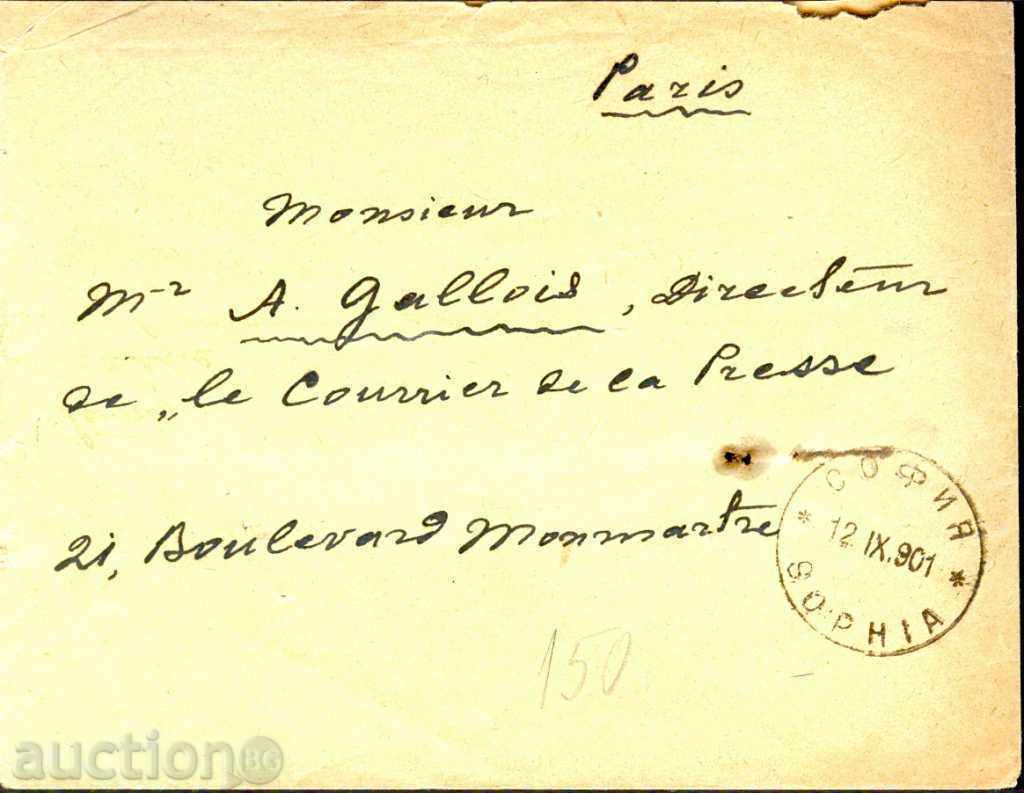 Paris
Monsieur
M-r A. Gallois, Directeur
de „le Courrier de la Presse
21, Boulevard Monmartre
СОФИЯ
12 IX.901
SOPHIA
150
auctionBG